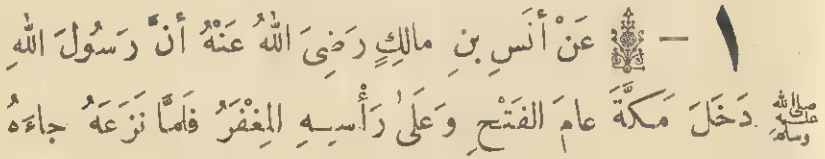 ١ - عَنْ أَنَسِ بنِ مالِكٍ رَضِيَ اللهُ عَنْهُ أنَّ رَسُولَ اللهِ
ﷺ دَخَلَ مَكَّةَ عامَ الفَتْحِ وَعَلىٰ رَأْسِهِ المِغْفَرُ فَلمَّا نَزَعَهُ جاءَهُ